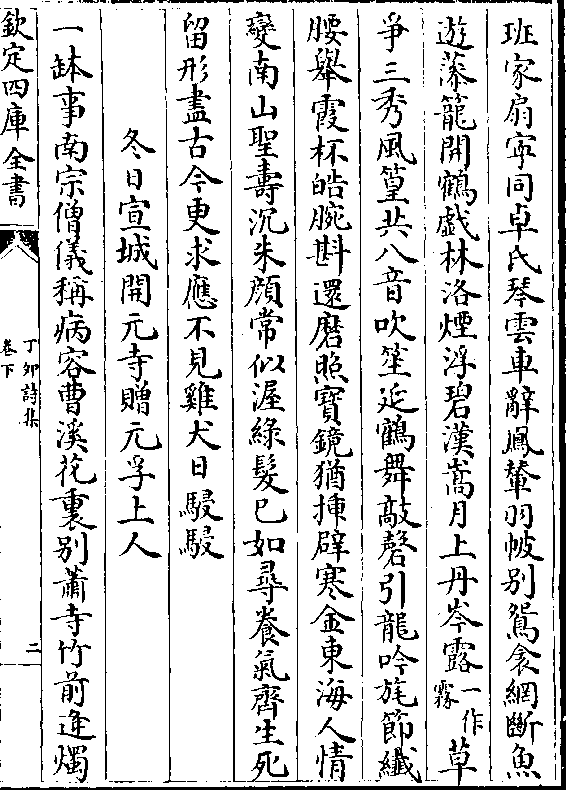 班家扇寜同卓氏琴雲車辭鳳輦羽帔别鴛衾網斷魚
遊藻籠開鶴戯林洛煙浮碧漢嵩月上丹岑露一作霧草
爭三秀風篁共八音吹笙延鶴舞敲磬引龍吟旄節纎
腰舉霞杯皓腕斟還磨照寶鏡猶揷辟寒金東海人情
變南山聖壽沉朱顔常似渥綠髮已如尋養氣齊生死
留形盡古今更求應不見雞犬日駸駸
冬日宣城開元寺贈元孚上人
一缽事南宗僧儀稱病容曹溪花裏别蕭寺竹前逢燭
欽定四庫全書
丁卯詩集
卷下
二